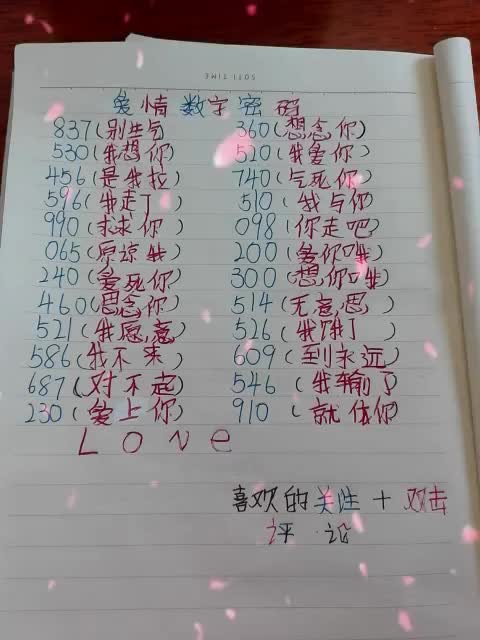 SOTI TIME
爱情数字密码
837(别生气 360(想念你)
530(我想你) 520(我爱你)
456(是我拉) 740(气死你)
596(我走了) 510(我与你)
990(求求你) 098(你走吧)
065(原谅我) 200(爱你哦)
240(爱死你) 300(想你哦)
460(思念你) 514(无意思)
521(我愿意) 526(我饿了)
586(我不来) 609(到永远)
687(对不起) 546(我输了)
230(爱上你) 910(就依你
Love
喜欢的关注+双击
评论